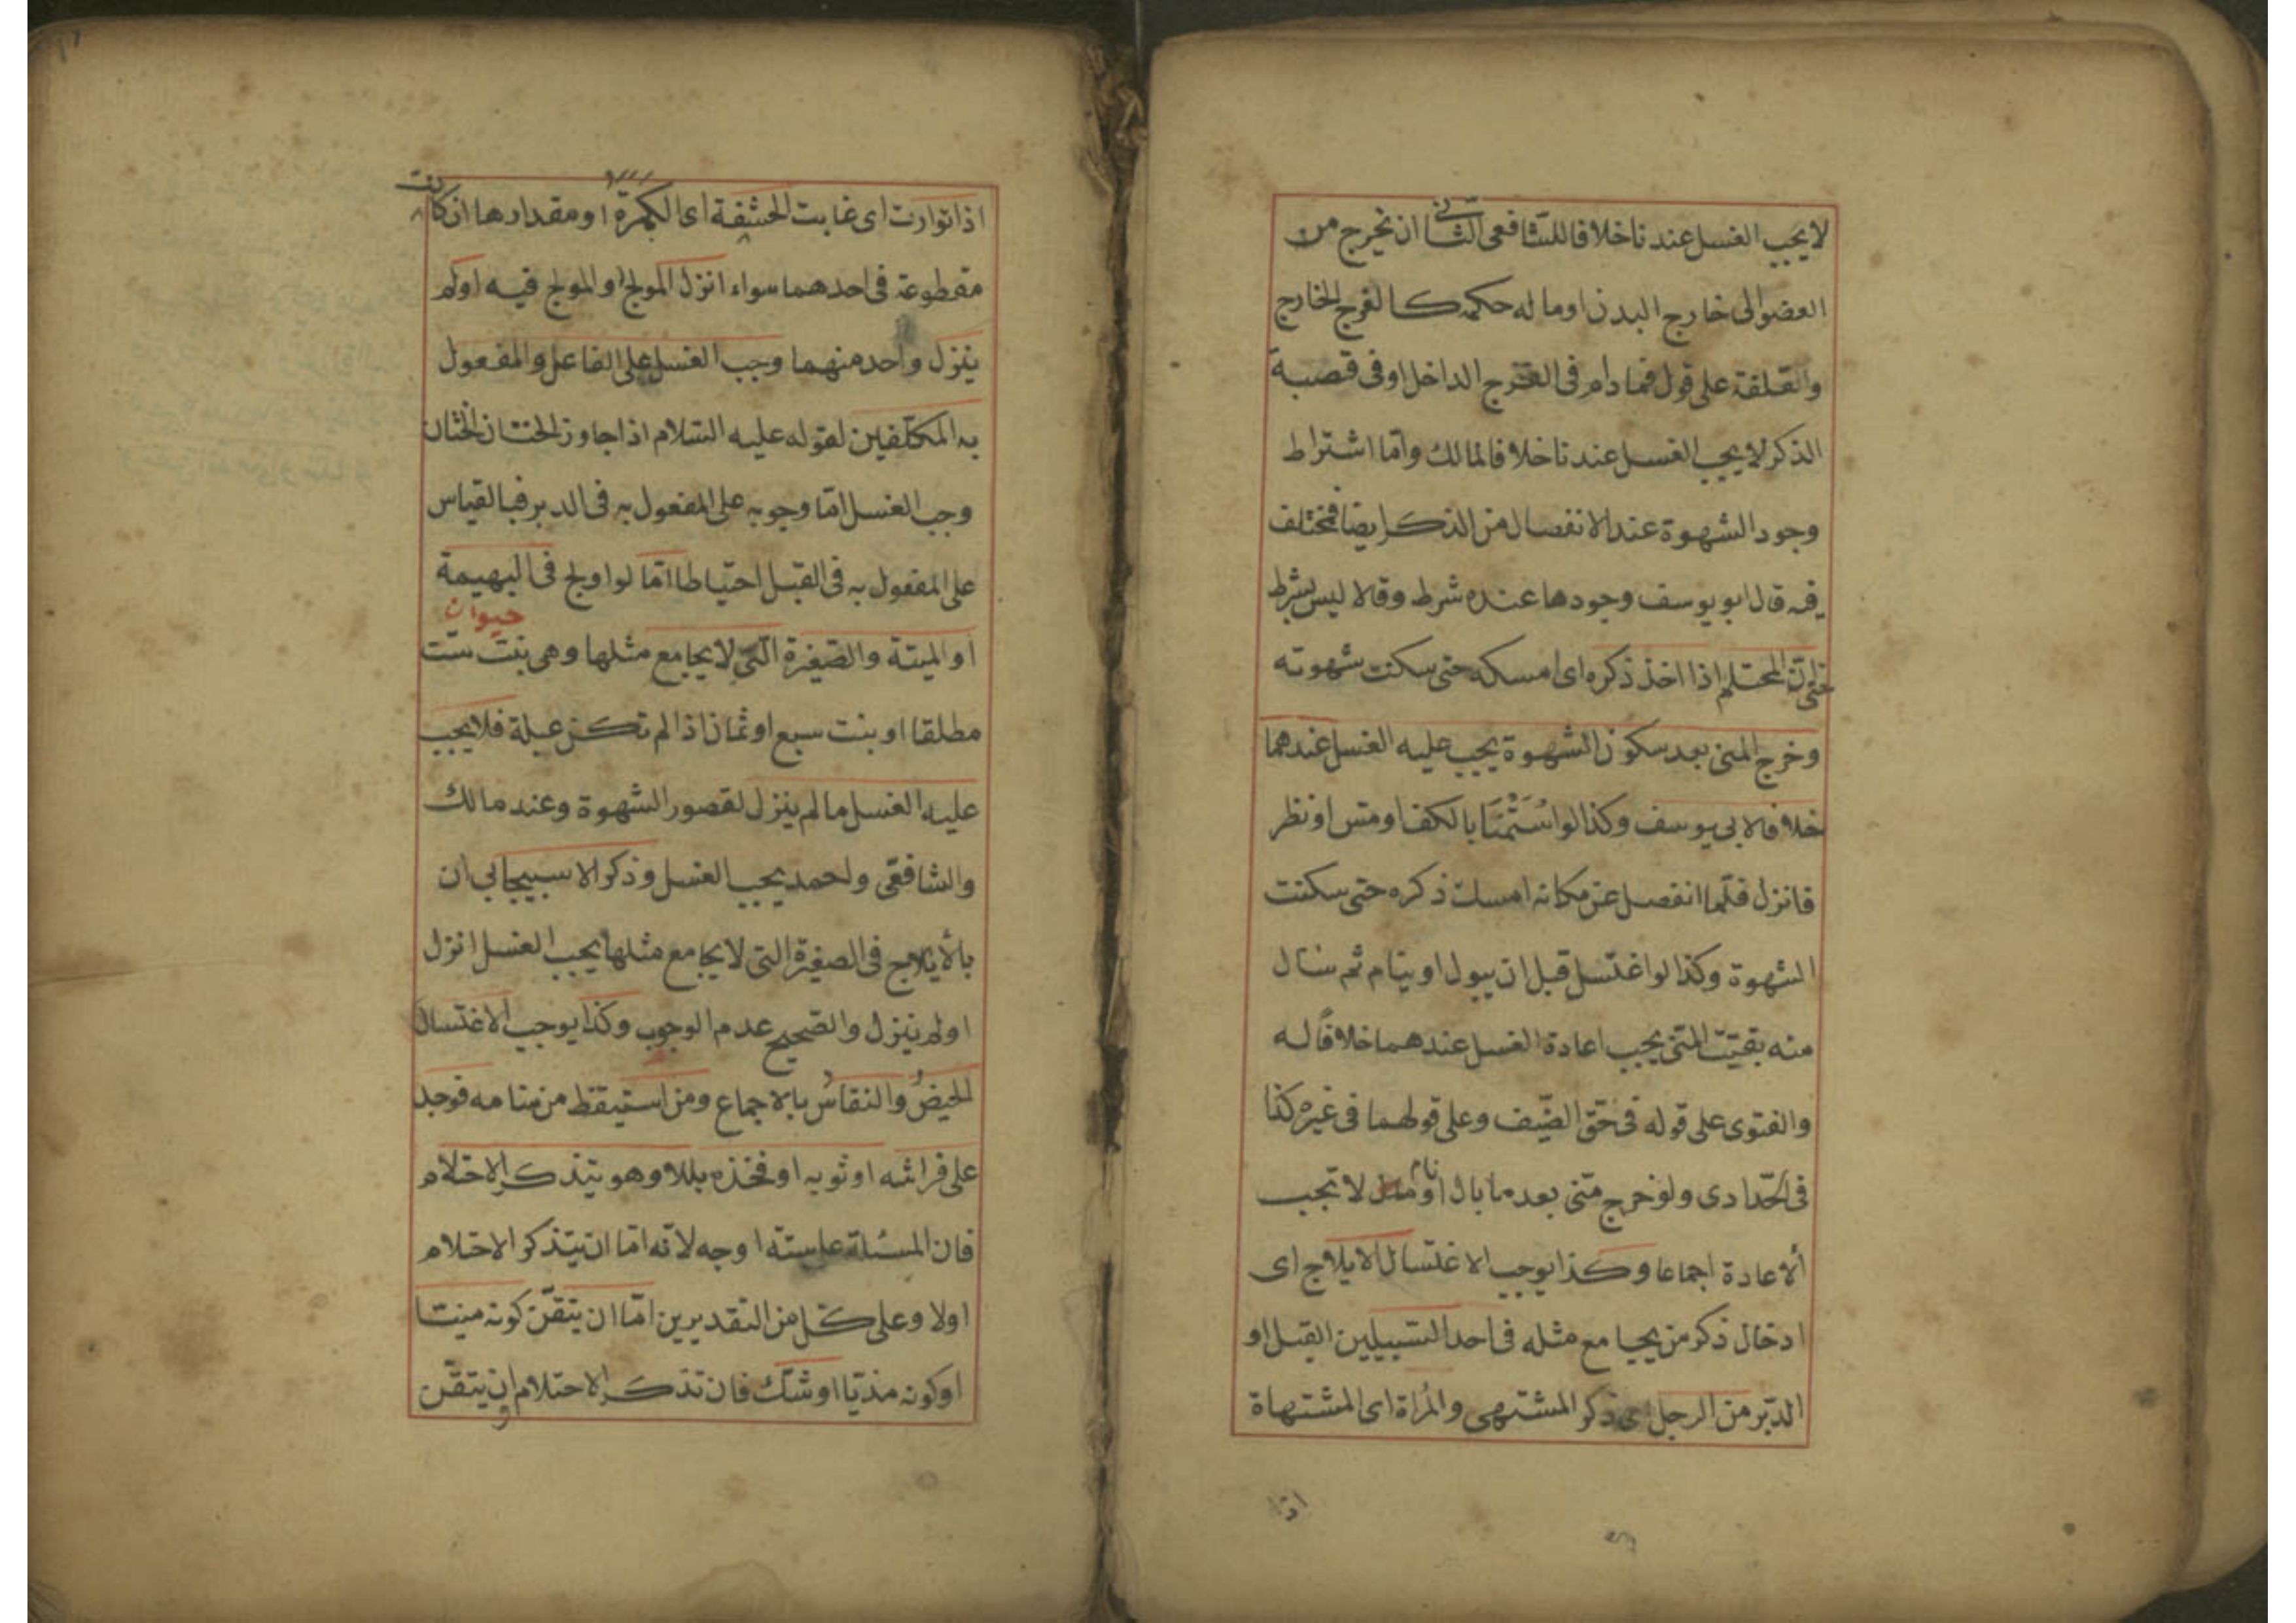 لا يجب الغسل عندنا خلافا للشافعى الثانى ان يخرج من
العضو الى خارج البدن او ما له حكمه كالفرج الخارج
والقلفة على قول فما دام فى الفرج الداخل او فى قصبة
الذكر لا يجب الغسل عندنا خلافا لمالك واما اشتراط
وجود الشهوة عند الانفصال من الذكر ايضا فمختلف
فيه قال ابو يوسف وجودها عنده شرط وقالا ليس بشرط
حتى ان المحتلم اذا اخذ ذكره اى امسكه حتى سكنت شهوته
وخرج المنى بعد سكون الشهوة يجب عليه الغسل عندهما
خلافا لابى يوسف وكذا لو استمنا بالكف او مس او نظر
فانزل فلما انفصل عن مكانه امسك ذكره حتى سكنت
الشهوة وكذا لو اغتسل قبل ان يبول او ينام ثم سال
منه بقيت المنى يجب اعادة الغسل عندهما خلافًا له
والفتوى على قوله فى حق الضيف وعلى قولهما فى غيره كذا
فى الحدادى ولو خرج منى بعد ما بال او نام لا تجب
الاعادة اجماعا وكذا يوجب الاغتسال الايلاج اى
ادخال ذكر من يجامع مثله فى احد السبيلين القبل او
الدبر من الرجل اى ذكر المشتهى والمراة اى المشتهاة
اذا
اذا توارت اى غابت الحشفة اى الكمرة او مقدارها ان كانت
مقطوعة فى احدهما سواء انزل المولج او المولج فيه او لم
ينزل واحد منهما وجب الغسل على الفاعل والمفعول
به المكلفين لقوله عليه السلام اذا جاوز الختان الختان
وجب الغسل اما وجوبه على المفعول به فى الدبر فبالقياس
على المفعول به فى القبل احتياطا اما لو اولج فى البهيمة
حيوان
او الميتة والصغيرة التى لا يجامع مثلها وهى بنت ست
مطلقا او بنت سبع او ثمان اذا لم تكن عبلة فلا يجب
عليه الغسل ما لم ينزل لقصور الشهوة وعند مالك
والشافعى واحمد يجب الغسل وذكر الاسبيجابى ان
بالايلاج فى الصغيرة التى لا يجامع مثلها يجب الغسل انزل
او لم ينزل والصحيح عدم الوجوب وكذا يوجب الاغتسال
الحيضُ والنفاسُ بالاجماع ومن استيقظ من منامه فوجد
على فراشه او ثوبه او فخذه بللا وهو يتذكر الاحتلام
فان المسئلة على ستة اوجه لانه اما ان يتذكر الاحتلام
اولا وعلى كل من التقديرين اما ان يتقن كونه منيا
او كونه مذيا او شك فان تذكر الاحتلام ان يتقن